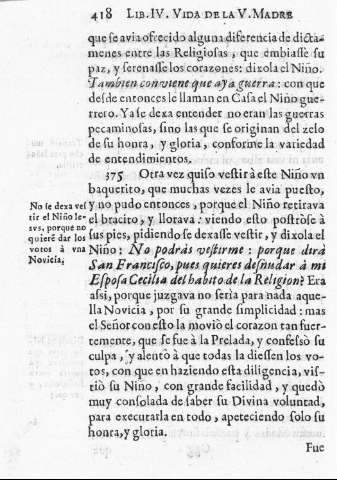 418 LIB. IV. VIDA DE LA V. MADRE
que se avia ofrecido alguna diferencia de dictà-
menes entre las Religiosas, que embiasse su
paz, y serenasse los corazones: dixola el Niño.
Tambien conviene que aya guerra: con que
desde entonces le llaman en Casa el Niño gue-
rrero. Ya se dexa entender no eran las guerras
pecaminosas, sino las que se originan del zelo
de su honra, y gloria, conforme la variedad
de entendimientos.
375 Otra vez quiso vestir à este Niño vn
baquerito, que muchas veles le avia puesto,
y no pudo entonces, porque el Niño retirava
el bracito, y llorava: viendo esto postròse à
sus pies, pidiendo se dexasse vestir, y dixola el
Niño: No podràs vestirme: porque dirà
San Francisco, pues quieres desnudar à mi
Esposa Cecilia del habito de la Religion? Era
assi, porque juzgava no seria para nada aque-
lla Novicia, por su grande simplicidad: mas
el Señor con esto la moviò el corazon tan fuer-
temente, que se fue à la Prelada, y confesò su
culpa, y alentò à que todas la diessen los vo-
tos, con que en haziendo esta diligencia, vis-
tiò su Niño, con grande facilidad, y quedò
muy consolada de saber su Divina voluntad,
para executarla en todo, apeteciendo solo su
honra, y gloria.
Fue
No se dexa ves
tir el Niño Ie-
svs, porque no
quierē dar los
votos à vna
Novicia,